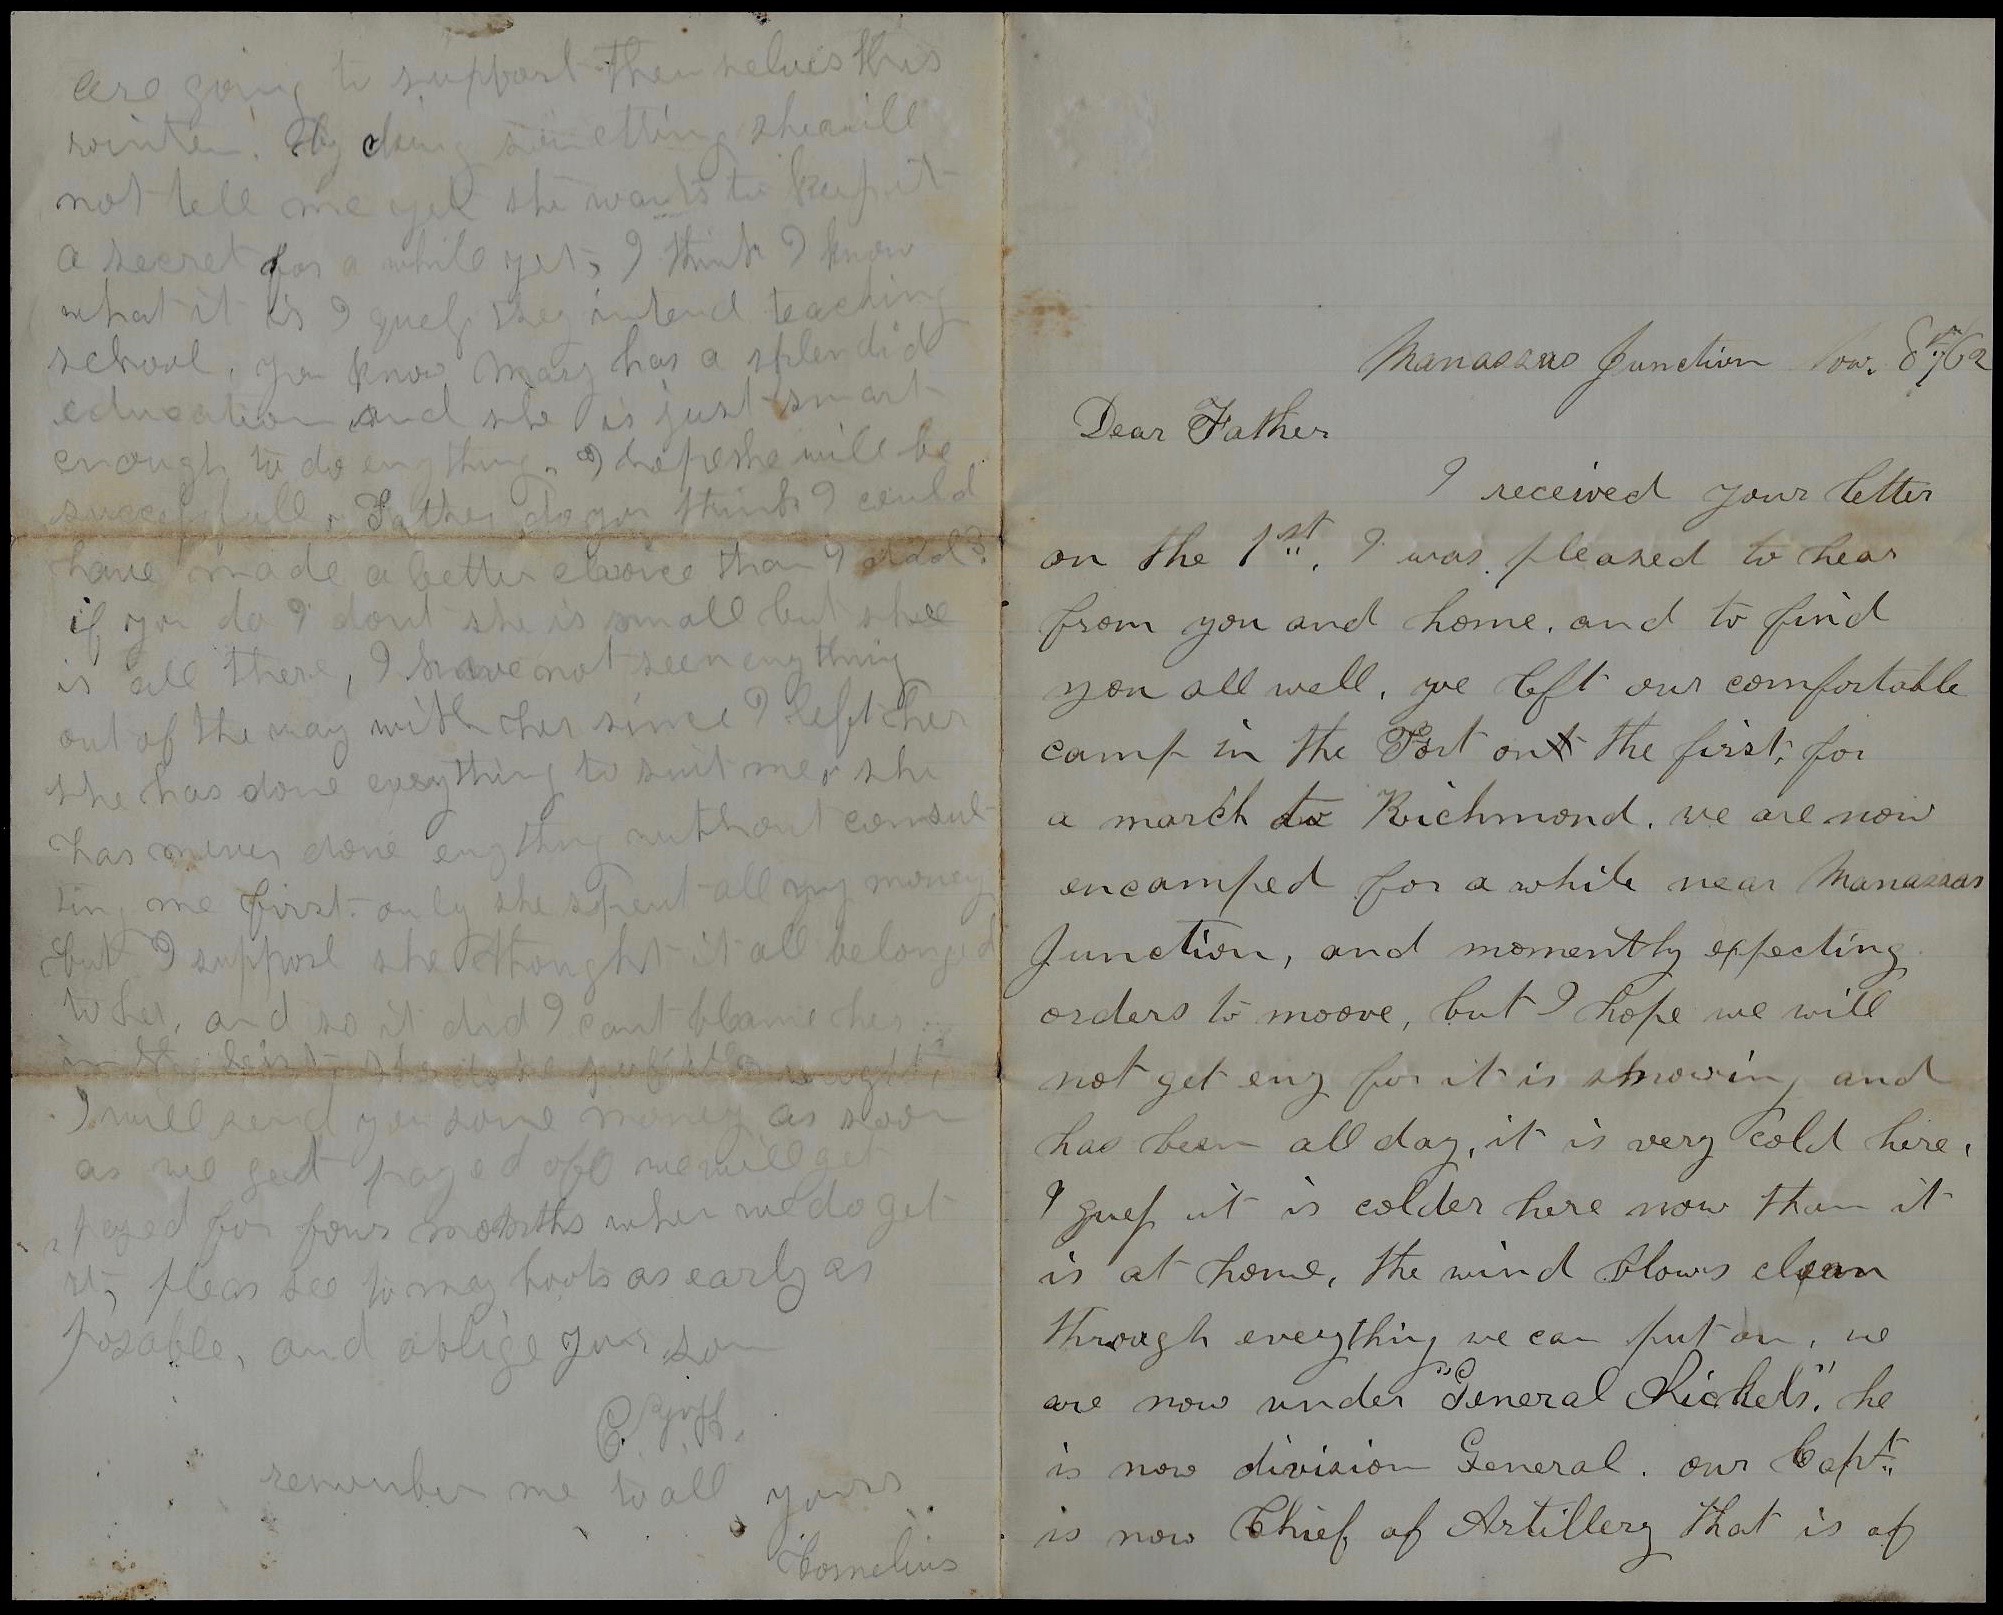 Manassas Junction Nov. 8th/62
Dear Father
I received your letter
on the 1st. I was pleased to hear
from you and home. and to find
you all well, we left our comfortable
camp in the Fort on the first, for
a march to Richmond. we are now
encamped for a while near Manassas
Junction, and momently expecting
orders to moove, but I hope we will
not get eny for it is snowing and
has been all day, it is very cold here,
I guess it is colder here now than it
is at home, the wind blows clean
through everything we can put on, we
are now under "General Sickels". he
is now division General. our Capt.
is now Chief of Artillery that is of
are going to support themselves this
winter. By doing something she will
not tell me yet she wants to keep it
a secret for a while yet, I think I know
what it is I guess they intend teaching
school, you know Mary has a splendid
education and she is just smart
enough to do enything. I hope she will be
successfull. Father do you think I could
have made a better choice than I did?
if you do I dont she is small but shee
is all there, I have not seen enything
out of the way with her since I left her
she has done everything to suit me, she
has never done enything without consul-
ting me first. only she spent all my money
but I suppose she thought it all belonged
to her, and so it did I cant blame her
in the least, she done
I will send you some money as soon
as we get payed off we will get
payed for four months when we do get
it, pleas see to my boots as early as
posable, and oblige your son
C.
remember me to all yours
Cornelius